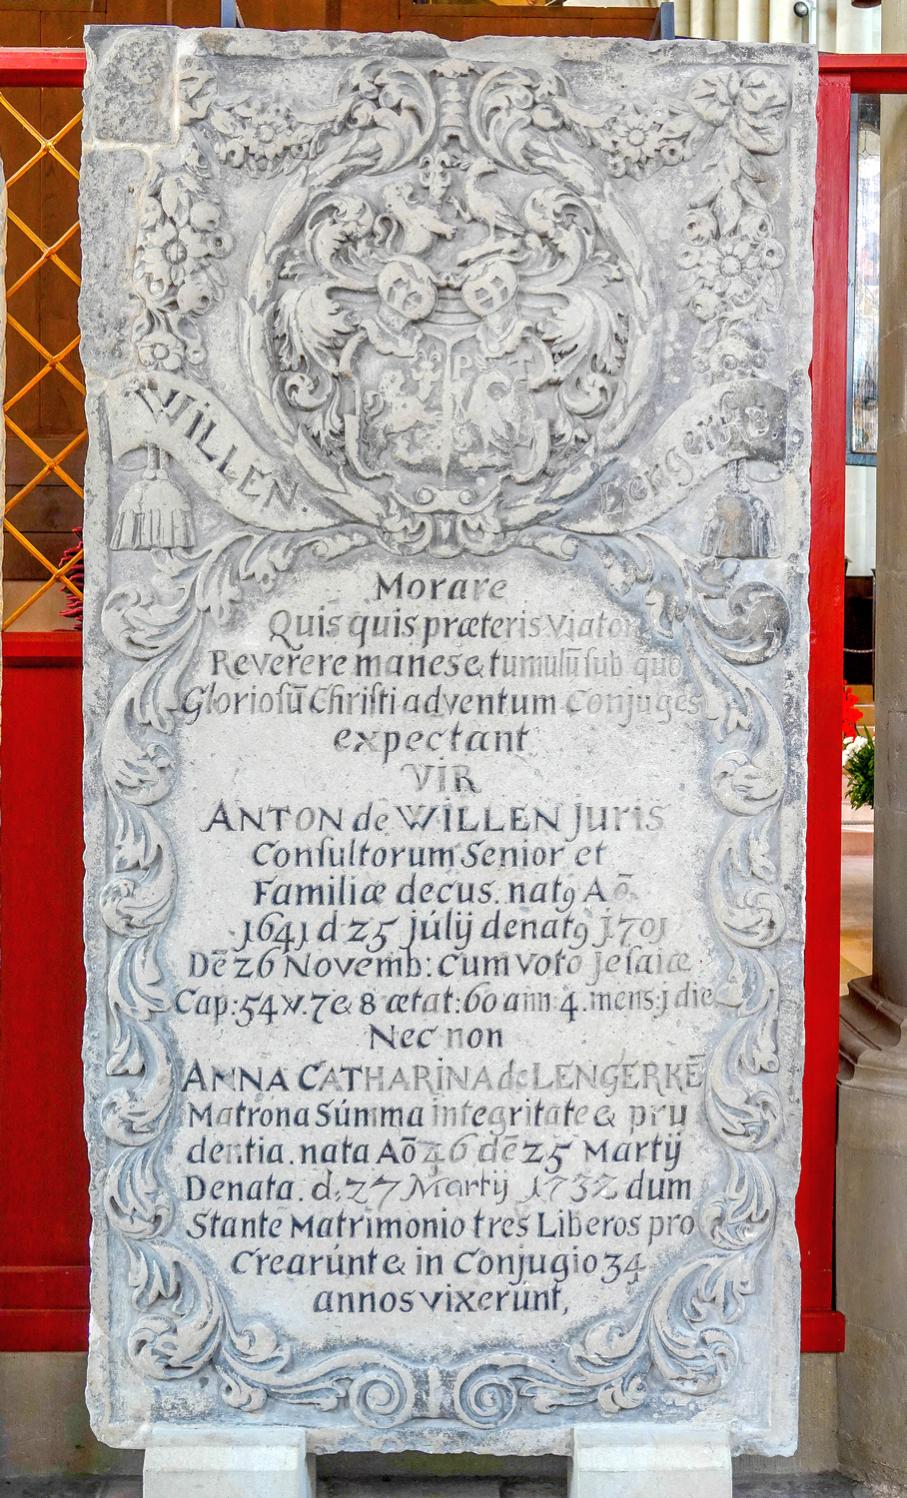 WILLEN
Lengerke
Morare
Quis quis præteris Viator
Reverere manes & tumulū sub quo
Gloriosū Christi adventum Conjuges
expectant
VIR
ANTON de WILLEN Juris
Consultorum Senior et
Familiæ decus. natꝯ Aō
1641 d 25 Júlÿ denatꝯ 1701
Dē 26 Novemb: Cum Voto Jesaiæ
Cap: 54 v. 7 & 8 ætat: 60 ann: 4. mens: 1 die
Nec non
ANNA CATHARINA de LENGERKĒ
Matrona Súmma integritate & pru
dentia. nata Aō dē 25 Martÿ
Denata. d 27 Martÿ 1732 dum
Stante Matrimonio tres Liberos pro
Crearúnt & in Conjugio 34
annos vixerunt,